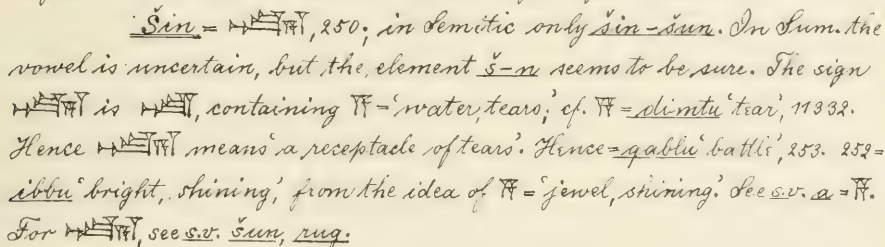 Šin = 𒋳, 250; in Semitic only šin-šun. In Sum. the
vowel is uncertain, but the element š-n seems to be sure. The sign
is, containing 𒀀 = 'water, tears;' cf. 𒀀 = dimtu 'tear', 11332.
Hence means 'a receptacle of tears'. Hence = qablu 'battle', 253. 252 =
ibbu 'bright, shining,' from the idea of 𒀀 = 'jewel, shining.' See s.v. a = 𒀀.
For, see s.v. šun, rug.